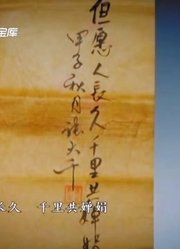 宝库
但愿人長久千里共嬋娟
甲子秋月
大千
长久 千里共婵娟